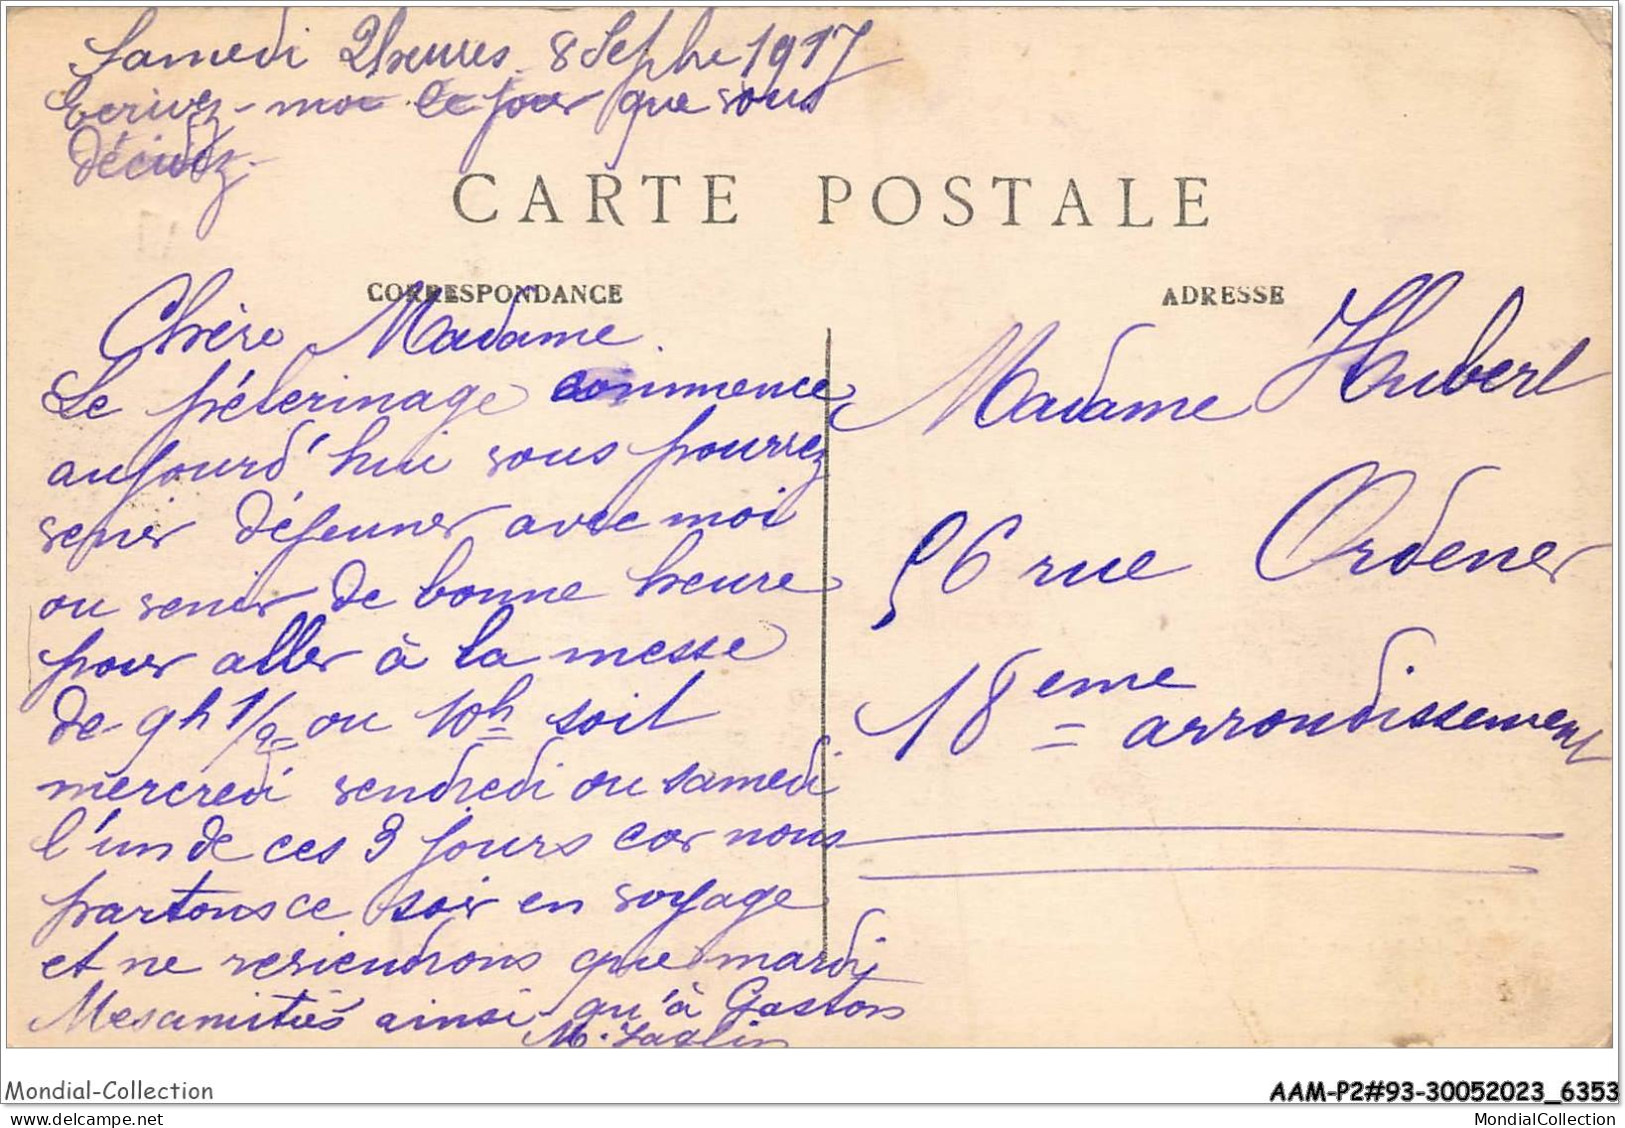 Samedi 2 heures 8 Septbre 1917
Ecrivez-moi le jour que vous
décidez.
CARTE POSTALE
CORRESPONDANCE
ADRESSE
Chère Madame.
Le pélerinage commence
aujourd'hui vous pourrez
venir déjeuner avec moi
ou venir de bonne heure
pour aller à la messe
de 9h 1/2 ou 10h soit
mercredi vendredi ou samedi
l'un de ces 3 jours car nous
partons ce soir en voyage
et ne reviendrons que mardi
Mes amitiés ainsi qu'à Gaston
M.
Madame Hubert
56 rue Ordener
18eme arrondissement
Mondial-Collection
AAM-P2#93-30052023_6353
delcampe.net
MondialCollection